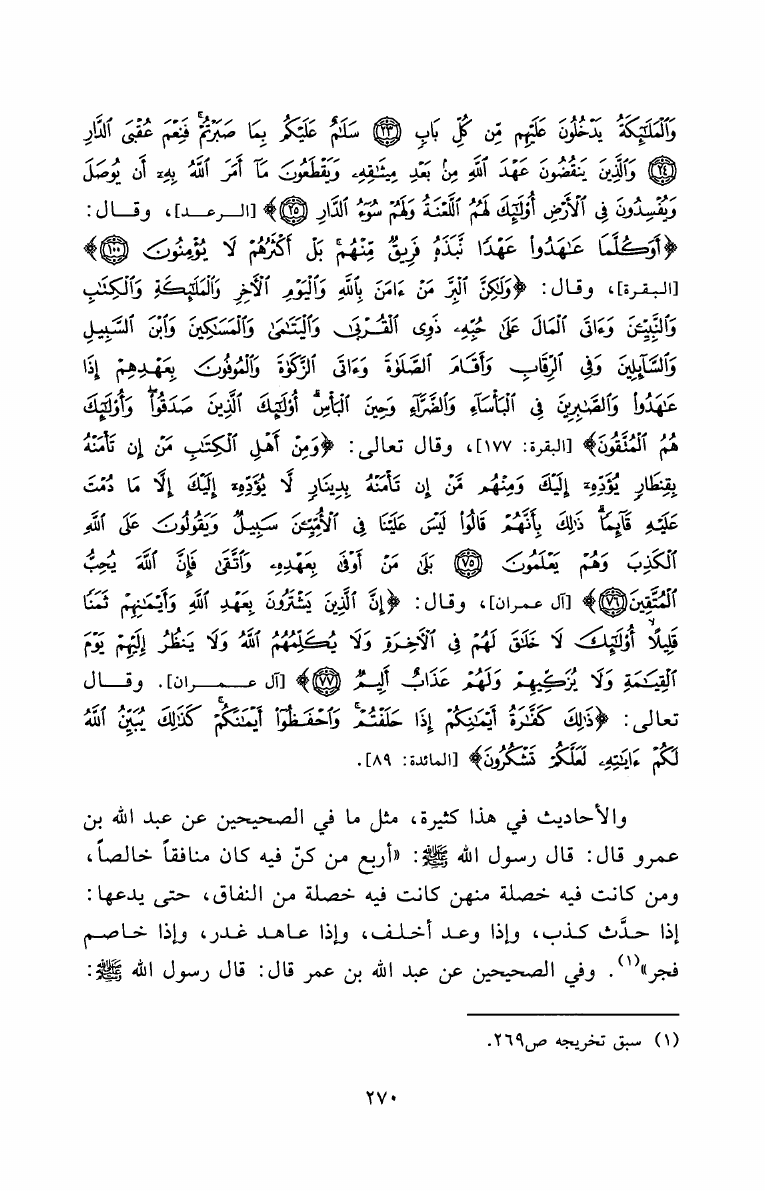 وَٱلْمَلَٰٓئِكَةُ يَدْخُلُونَ عَلَيْهِم مِّن كُلِّ بَابٍ ﴿٢٣﴾ سَلَٰمٌ عَلَيْكُم بِمَا صَبَرْتُمْ ۚ فَنِعْمَ عُقْبَى ٱلدَّارِ
﴿٢٤﴾ وَٱلَّذِينَ يَنقُضُونَ عَهْدَ ٱللَّهِ مِنۢ بَعْدِ مِيثَٰقِهِۦ وَيَقْطَعُونَ مَآ أَمَرَ ٱللَّهُ بِهِۦٓ أَن يُوصَلَ
وَيُفْسِدُونَ فِى ٱلْأَرْضِ أُو۟لَٰٓئِكَ لَهُمُ ٱللَّعْنَةُ وَلَهُمْ سُوٓءُ ٱلدَّارِ ﴿٢٥﴾﴾ [الـرعـد]، وقـال:
﴿أَوَكُلَّمَا عَٰهَدُوا۟ عَهْدًا نَّبَذَهُۥ فَرِيقٌ مِّنْهُم ۚ بَلْ أَكْثَرُهُمْ لَا يُؤْمِنُونَ ﴿١٠٠﴾﴾
[البقرة]، وقال: ﴿وَلَٰكِنَّ ٱلْبِرَّ مَنْ ءَامَنَ بِٱللَّهِ وَٱلْيَوْمِ ٱلْأَخِرِ وَٱلْمَلَٰٓئِكَةِ وَٱلْكِتَٰبِ
وَٱلنَّبِيِّۦنَ وَءَاتَى ٱلْمَالَ عَلَىٰ حُبِّهِۦ ذَوِى ٱلْقُرْبَىٰ وَٱلْيَتَٰمَىٰ وَٱلْمَسَٰكِينَ وَٱبْنَ ٱلسَّبِيلِ
وَٱلسَّآئِلِينَ وَفِى ٱلرِّقَابِ وَأَقَامَ ٱلصَّلَوٰةَ وَءَاتَى ٱلزَّكَوٰةَ وَٱلْمُوفُونَ بِعَهْدِهِمْ إِذَا
عَٰهَدُوا۟ وَٱلصَّٰبِرِينَ فِى ٱلْبَأْسَآءِ وَٱلضَّرَّآءِ وَحِينَ ٱلْبَأْسِ ۗ أُو۟لَٰٓئِكَ ٱلَّذِينَ صَدَقُوا۟ ۖ وَأُو۟لَٰٓئِكَ
هُمُ ٱلْمُتَّقُونَ﴾ [البقرة: ١٧٧]، وقال تعالى: ﴿وَمِنْ أَهْلِ ٱلْكِتَٰبِ مَنْ إِن تَأْمَنْهُ
بِقِنطَارٍ يُؤَدِّهِۦٓ إِلَيْكَ وَمِنْهُم مَّنْ إِن تَأْمَنْهُ بِدِينَارٍ لَّا يُؤَدِّهِۦٓ إِلَيْكَ إِلَّا مَا دُمْتَ
عَلَيْهِ قَآئِمًا ۗ ذَٰلِكَ بِأَنَّهُمْ قَالُوا۟ لَيْسَ عَلَيْنَا فِى ٱلْأُمِّيِّۦنَ سَبِيلٌ وَيَقُولُونَ عَلَى ٱللَّهِ
ٱلْكَذِبَ وَهُمْ يَعْلَمُونَ ﴿٧٥﴾ بَلَىٰ مَنْ أَوْفَىٰ بِعَهْدِهِۦ وَٱتَّقَىٰ فَإِنَّ ٱللَّهَ يُحِبُّ
ٱلْمُتَّقِينَ ﴿٧٦﴾﴾ [آل عمران]، وقال: ﴿إِنَّ ٱلَّذِينَ يَشْتَرُونَ بِعَهْدِ ٱللَّهِ وَأَيْمَٰنِهِمْ ثَمَنًا
قَلِيلًا أُو۟لَٰٓئِكَ لَا خَلَٰقَ لَهُمْ فِى ٱلْأَخِرَةِ وَلَا يُكَلِّمُهُمُ ٱللَّهُ وَلَا يَنظُرُ إِلَيْهِمْ يَوْمَ
ٱلْقِيَٰمَةِ وَلَا يُزَكِّيهِمْ وَلَهُمْ عَذَابٌ أَلِيمٌ ﴿٧٧﴾﴾ [آل عـمـران]. وقـال
تعالى: ﴿ذَٰلِكَ كَفَّٰرَةُ أَيْمَٰنِكُمْ إِذَا حَلَفْتُمْ ۚ وَٱحْفَظُوٓا۟ أَيْمَٰنَكُمْ ۚ كَذَٰلِكَ يُبَيِّنُ ٱللَّهُ
لَكُمْ ءَايَٰتِهِۦ لَعَلَّكُمْ تَشْكُرُونَ﴾ [المائدة: ٨٩].
والأحاديث في هذا كثيرة، مثل ما في الصحيحين عن عبد الله بن
عمرو قال: قال رسول الله ﷺ: «أربع من كنّ فيه كان منافقاً خالصاً،
ومن كانت فيه خصلة منهن كانت فيه خصلة من النفاق، حتى يدعها:
إذا حدَّث كذب، وإذا وعد أخلف، وإذا عاهد غدر، وإذا خاصم
فجر»(١). وفي الصحيحين عن عبد الله بن عمر قال: قال رسول الله ﷺ:
(١) سبق تخريجه ص٢٦٩.
٢٧٠